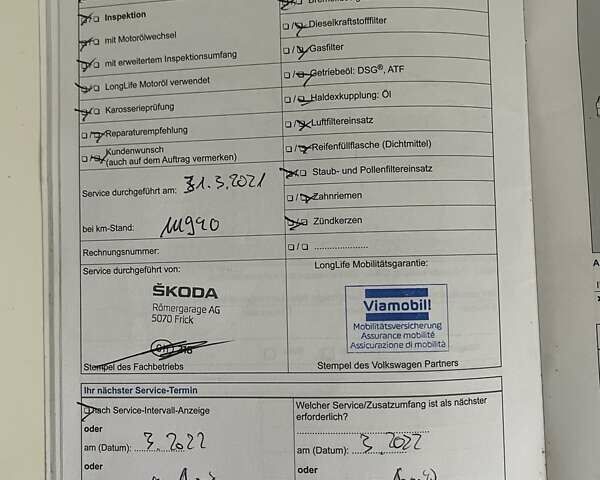 Inspektion
mit Motorölwechsel
mit erweitertem Inspektionsumfang
LongLife Motoröl verwendet
Karosserieprüfung
Reparaturempfehlung
Kundenwunsch
(auch auf dem Auftrag vermerken)
Service durchgeführt am: 31.3.2021
bei km-Stand:
Rechnungsnummer:
Dieselkraftstofffilter
Gasfilter
Getriebeöl: DSG®, ATF
Haldexkupplung: Öl
Luftfiltereinsatz
Reifenfüllflasche (Dichtmittel)
Staub- und Pollenfiltereinsatz
Zahnriemen
Zündkerzen
Service durchgeführt von:
ŠKODA
Römergarage AG
5070 Frick
Stempel des Fachbetriebs
LongLife Mobilitätsgarantie:
Viamobil!
Mobilitätsversicherung
Assurance mobilité
Assicurazione di mobilità
Stempel des Volkswagen Partners
Ihr nächster Service-Termin
nach Service-Intervall-Anzeige
oder
am (Datum): 3.2022
oder
Welcher Service/Zusatzumfang ist als nächster
erforderlich?
am (Datum): 3.2022
oder